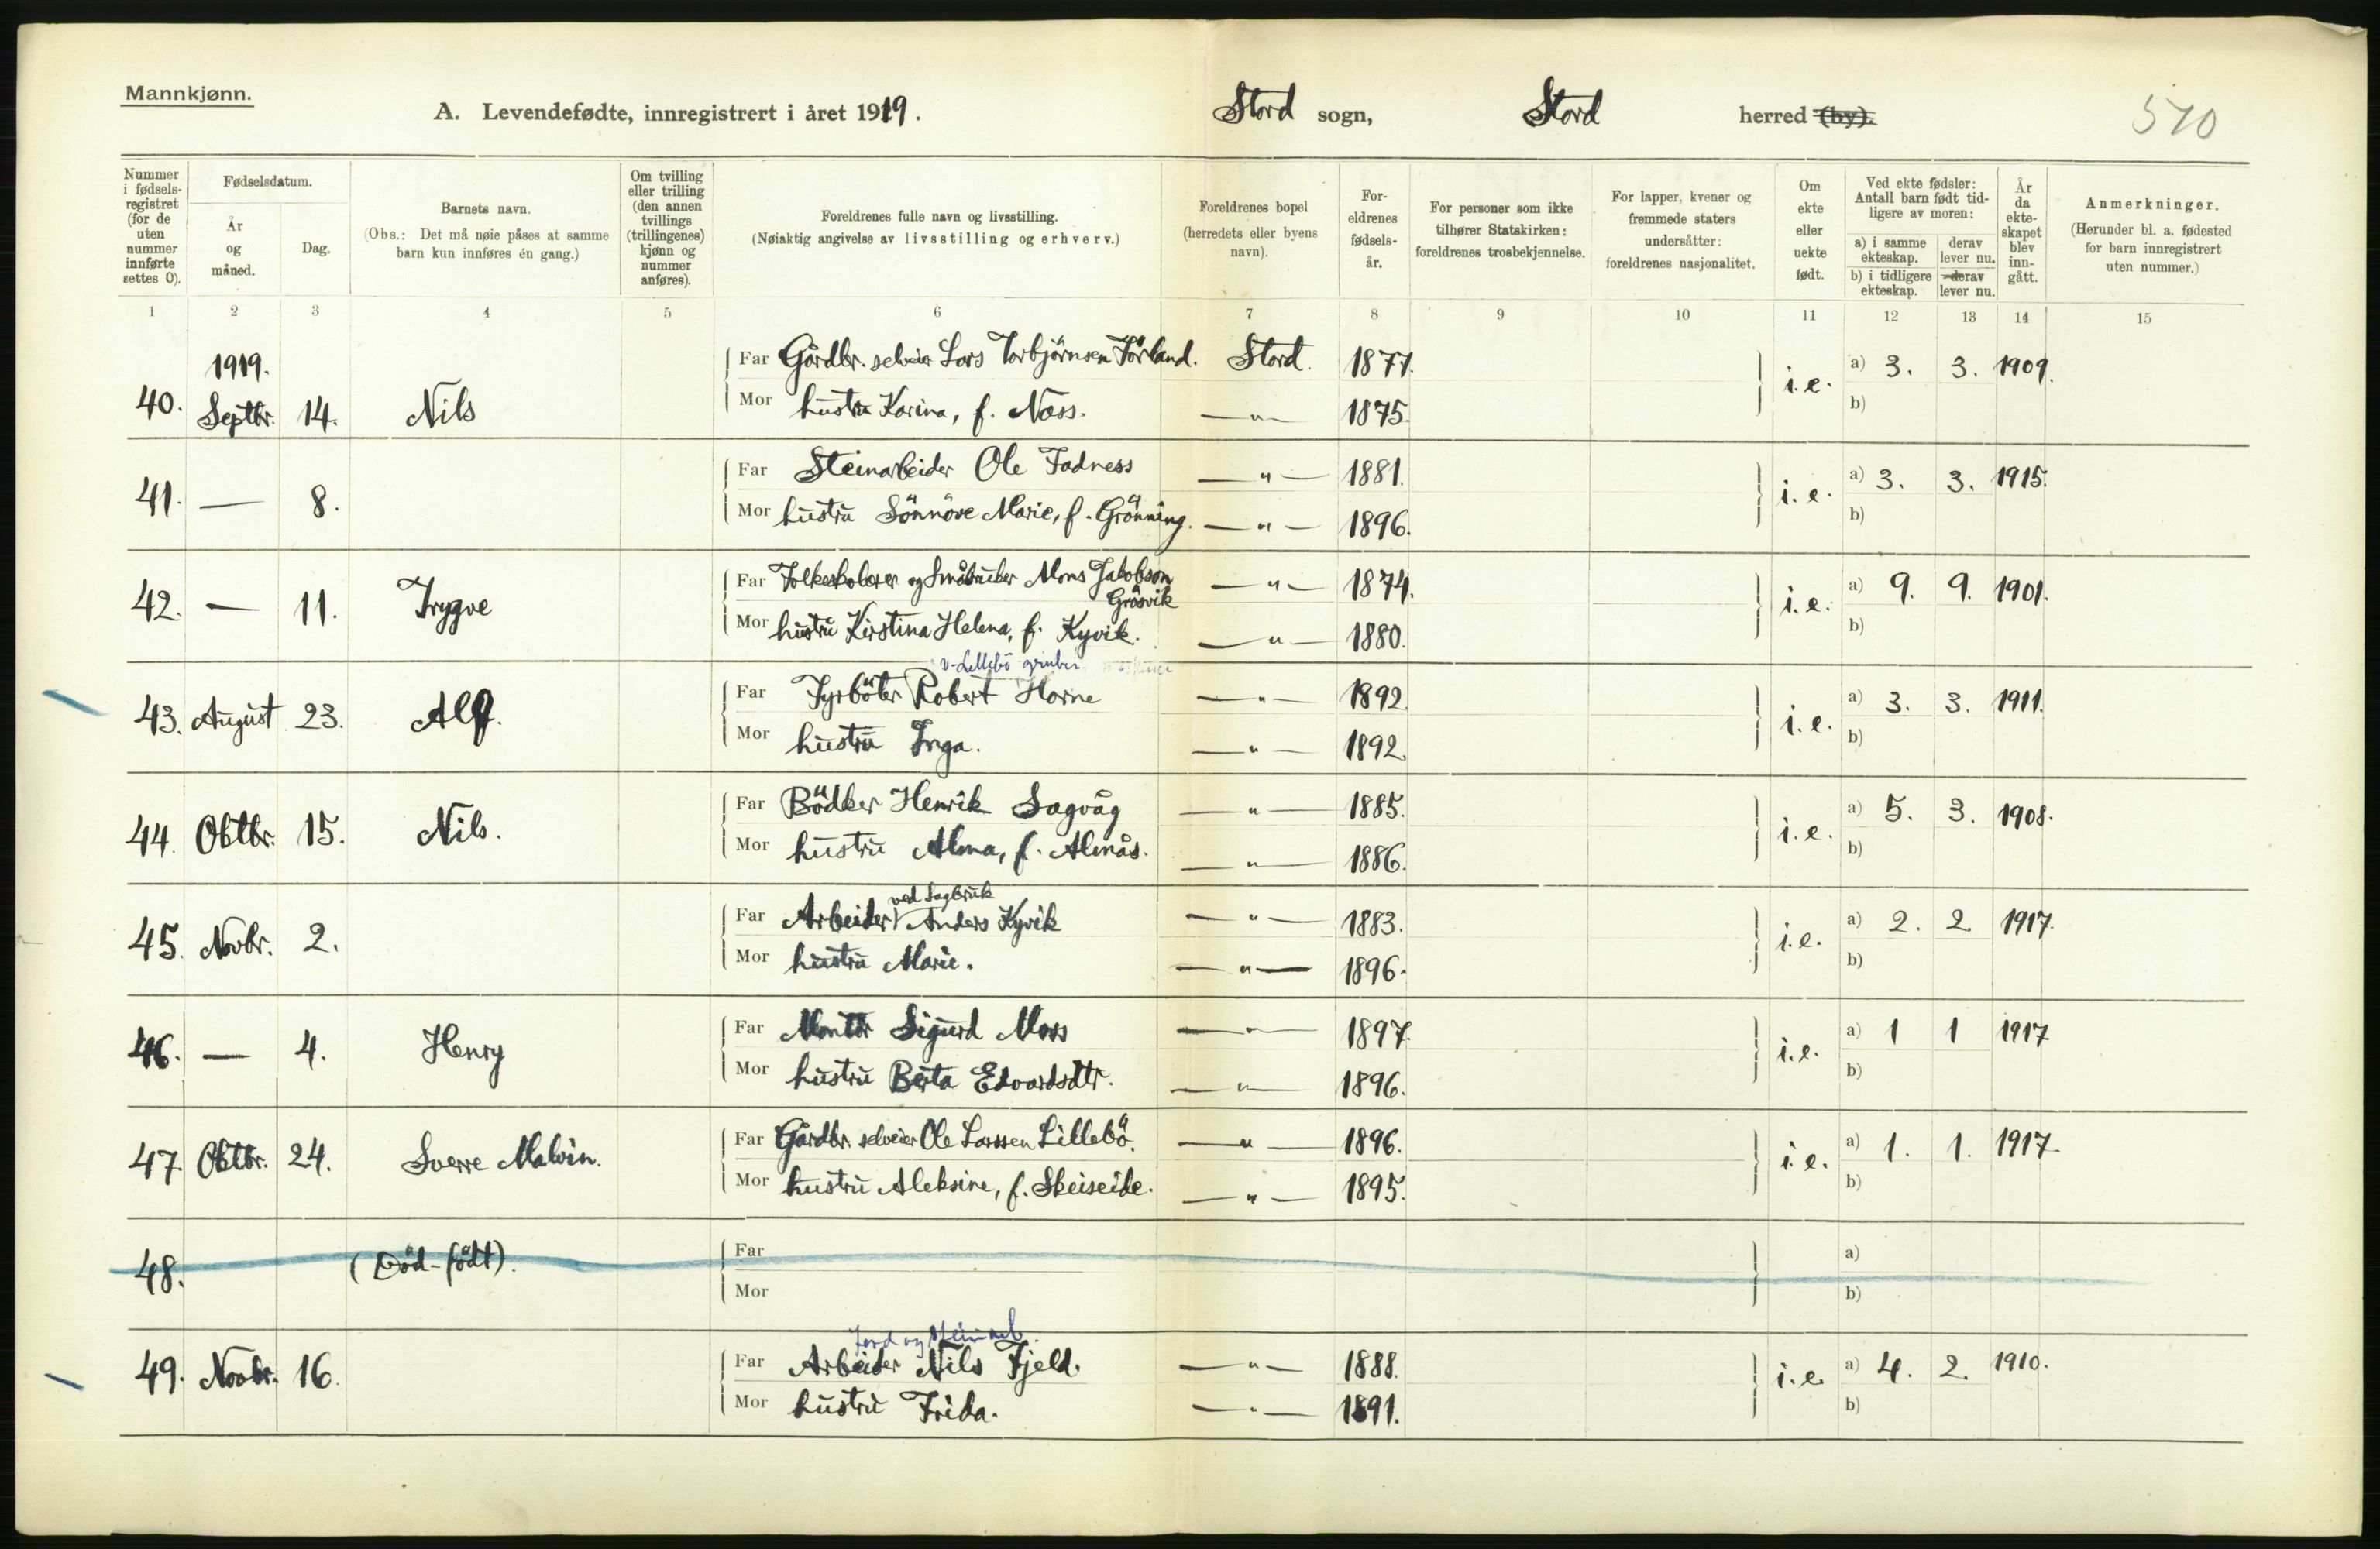 Mannkjønn.
A. Levendefødte, innregistrert i året 1919. Stord sogn, Stord herred (by). 570
Nummer i fødsels-registret (for de uten nummer innførte settes 0).
Fødselsdatum.
År og måned.
Dag.
Barnets navn.
(Obs.: Det må nøie påses at samme barn kun innføres én gang.)
Om tvilling eller trilling (den annen tvillings (trillingenes) kjønn og nummer anføres).
Foreldrenes fulle navn og livsstilling.
(Nøiaktig angivelse av livsstilling og erhverv.)
Foreldrenes bopel (herredets eller byens navn).
For-eldrenes fødsels-år.
For personer som ikke tilhører Statskirken: foreldrenes trosbekjennelse.
For lapper, kvener og fremmede staters undersåtter: foreldrenes nasjonalitet.
Om ekte eller uekte født.
Ved ekte fødsler: Antall barn født tid-ligere av moren:
a) i samme ekteskap.
derav lever nu.
b) i tidligere ekteskap.
derav lever nu.
År da ekte-skapet blev inn-gått.
Anmerkninger.
(Herunder bl. a. fødested for barn innregistrert uten nummer.)
1 2 3 4 5 6 7 8 9 10 11 12 13 14 15
1919.
Far Gårdbr. selveier Lars Torbjörnsen Förland. Stord. 1877. a) 3. 3. 1909.
40. Septbr. 14. Nils i.e.
Mor hustru Karina, f. Næss. —"— 1875. b)
Far Steinarbeider Ole Fadness —"— 1881. a) 3. 3. 1915.
41. — 8. i.e.
Mor hustru Sönnöve Marie, f. Grönning. —"— 1896. b)
Far Folkeskolelærer og Småbruker Mons Jakobson —"— 1874. a) 9. 9. 1901.
Gråsvik
42. — 11. Trygve i.e.
Mor hustru Kirstina Helena, f. Kyvik. —"— 1880. b)
v. Lillebö gruber
Far Fyrböter Robert Horne —"— 1892. a) 3. 3. 1911.
43. August 23. Alf. i.e.
Mor hustru Inga. —"— 1892. b)
Far Bödker Henrik Sagvåg —"— 1885. a) 5. 3. 1908.
44. Oktbr. 15. Nils. i.e.
Mor hustru Alma, f. Almås. —"— 1886. b)
ved Sagbruk
Far Arbeider Anders Kyvik —"— 1883. a) 2. 2. 1917.
45. Novbr. 2. i.e.
Mor hustru Marie. —"— 1896. b)
Far Montör Sigurd Moss —"— 1897. a) 1 1 1917
46. — 4. Henry i.e.
Mor hustru Berta Edvardsdtr. —"— 1896. b)
Far Gårdbr. selveier Ole Larssen Lillebö. —"— 1896. a) 1. 1. 1917.
47. Oktbr. 24. Sverre Malvin. i.e.
Mor hustru Aleksine, f. Skeiseide. —"— 1895. b)
Far a)
48. (Död-födt).
Mor b)
Jord og steinarb.
Far Arbeider Nils Fjeld. —"— 1888. a) 4. 2. 1910.
49. Novbr. 16. i.e.
Mor hustru Frida. —"— 1891. b)